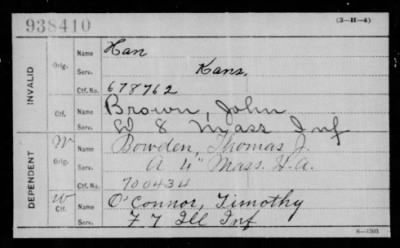 938410
(3-H-4)
INVALID
Orig.
Name Han
Serv. Kans.
Ctf. No. 678762
Ctf. Name Brown, John
Serv. 8 Mass Inf
DEPENDENT
W
Orig. Name Bowden, Thomas J.
Serv. A 4" Mass. H.A.
Ctf. No. 700434
W
Ctf. Name O'Connor, Timothy
Serv. F 7 Ill Inf